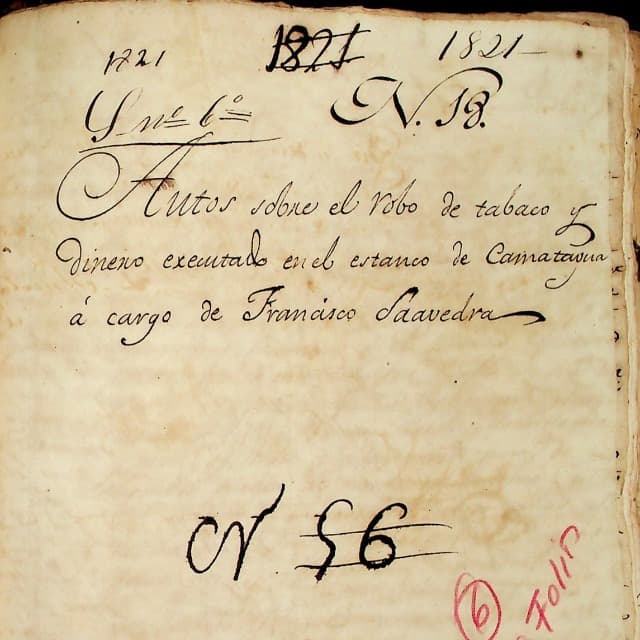 1821 1821 1821
nº 6º N. 18.
Autos sobre el robo de tabaco y
dinero executado en el estanco de Camatagua
á cargo de Francisco Saavedra
N 56
6 Folis